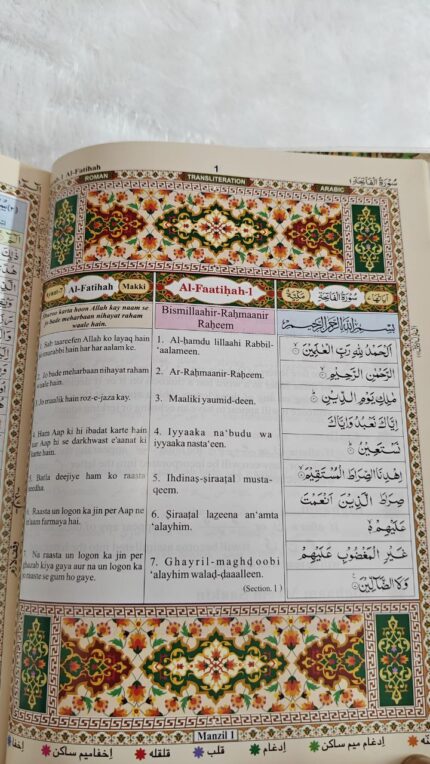 1 Al-Fatihah
1
سُوْرَةُ الْفَاتِحَة ١
ROMAN
TRANSLITERATION
ARABIC
Al-Fatihah
Makki
Al-Faatiḥah-1
سُوْرَةُ الْفَاتِحَةِ
مَكِّيَّة
karta hoon Allah kay naam se
jo bade meharbaan nihayat raham
waale hain.
Bismillaahir-Raḥmaanir
Raḥeem
بِسْمِ اللهِ الرَّحْمٰنِ الرَّحِيْمِ
Sab taareefen Allah ko layaq hain
murabbi hain har har aalam ke.
1. Al-ḥamdu lillaahi Rabbil-
‘aalameen.
اَلْحَمْدُ لِلّٰهِ رَبِّ الْعٰلَمِيْنَ
Jo bade meharbaan nihayat raham
waale hain.
2. Ar-Raḥmaanir-Raḥeem.
الرَّحْمٰنِ الرَّحِيْمِ
Jo maalik hain roz-e-jaza kay.
3. Maaliki yaumid-deen.
مٰلِكِ يَوْمِ الدِّيْنِ
4. Ham Aap ki hi ibadat karte hain
aur Aap hi se darkhwast e'aanat ki
karte hain.
4. Iyyaaka na‘budu wa
iyyaaka nasta‘een.
اِيَّاكَ نَعْبُدُ وَاِيَّاكَ
نَسْتَعِيْنُ
5. Batla deejiye ham ko raasta
seedha.
5. Ihdinaṣ-ṣiraaṭal musta-
qeem.
اِهْدِنَا الصِّرَاطَ الْمُسْتَقِيْمَ
6. Raasta un logon ka jin per Aap ne
in'aam furmaya hai.
6. Ṣiraaṭal laẓeena an‘amta
‘alayhim.
صِرَاطَ الَّذِيْنَ اَنْعَمْتَ
عَلَيْهِمْ
7. Na raasta un logon ka jin per
ghazab kiya gaya aur na un logon ka
jo raaste se gum ho gaye.
7. Ghayril-maghḍoobi
‘alayhim walaḍ-ḍaaalleen.
(Section. 1 )
غَيْرِ الْمَغْضُوْبِ عَلَيْهِمْ
وَلَا الضَّآلِّيْنَ
Manzil 1
اِدغام میم ساکن
اِدغام
قلب
قلقله
اِخفامیم ساکن
اِخفا